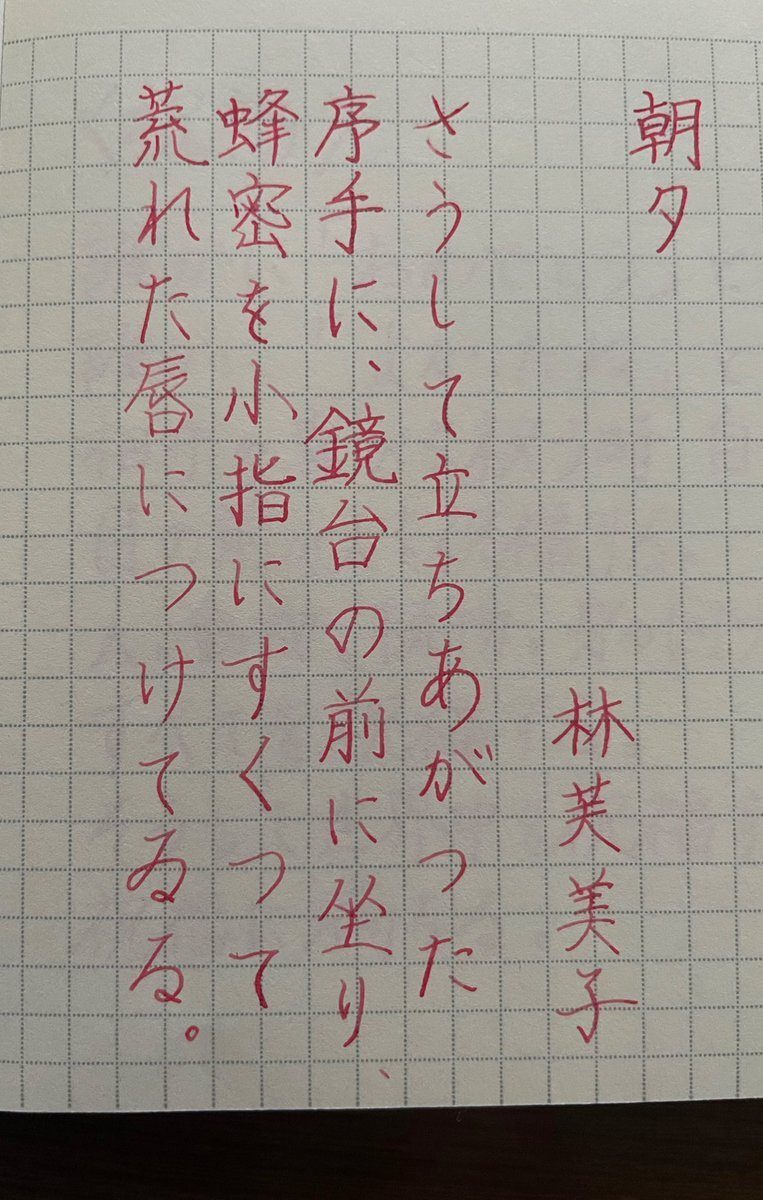 朝夕
林芙美子
さうして立ちあがつた
序手に、鏡台の前に坐り、
蜂密を小指にすくつて
荒れた唇につけてゐる。